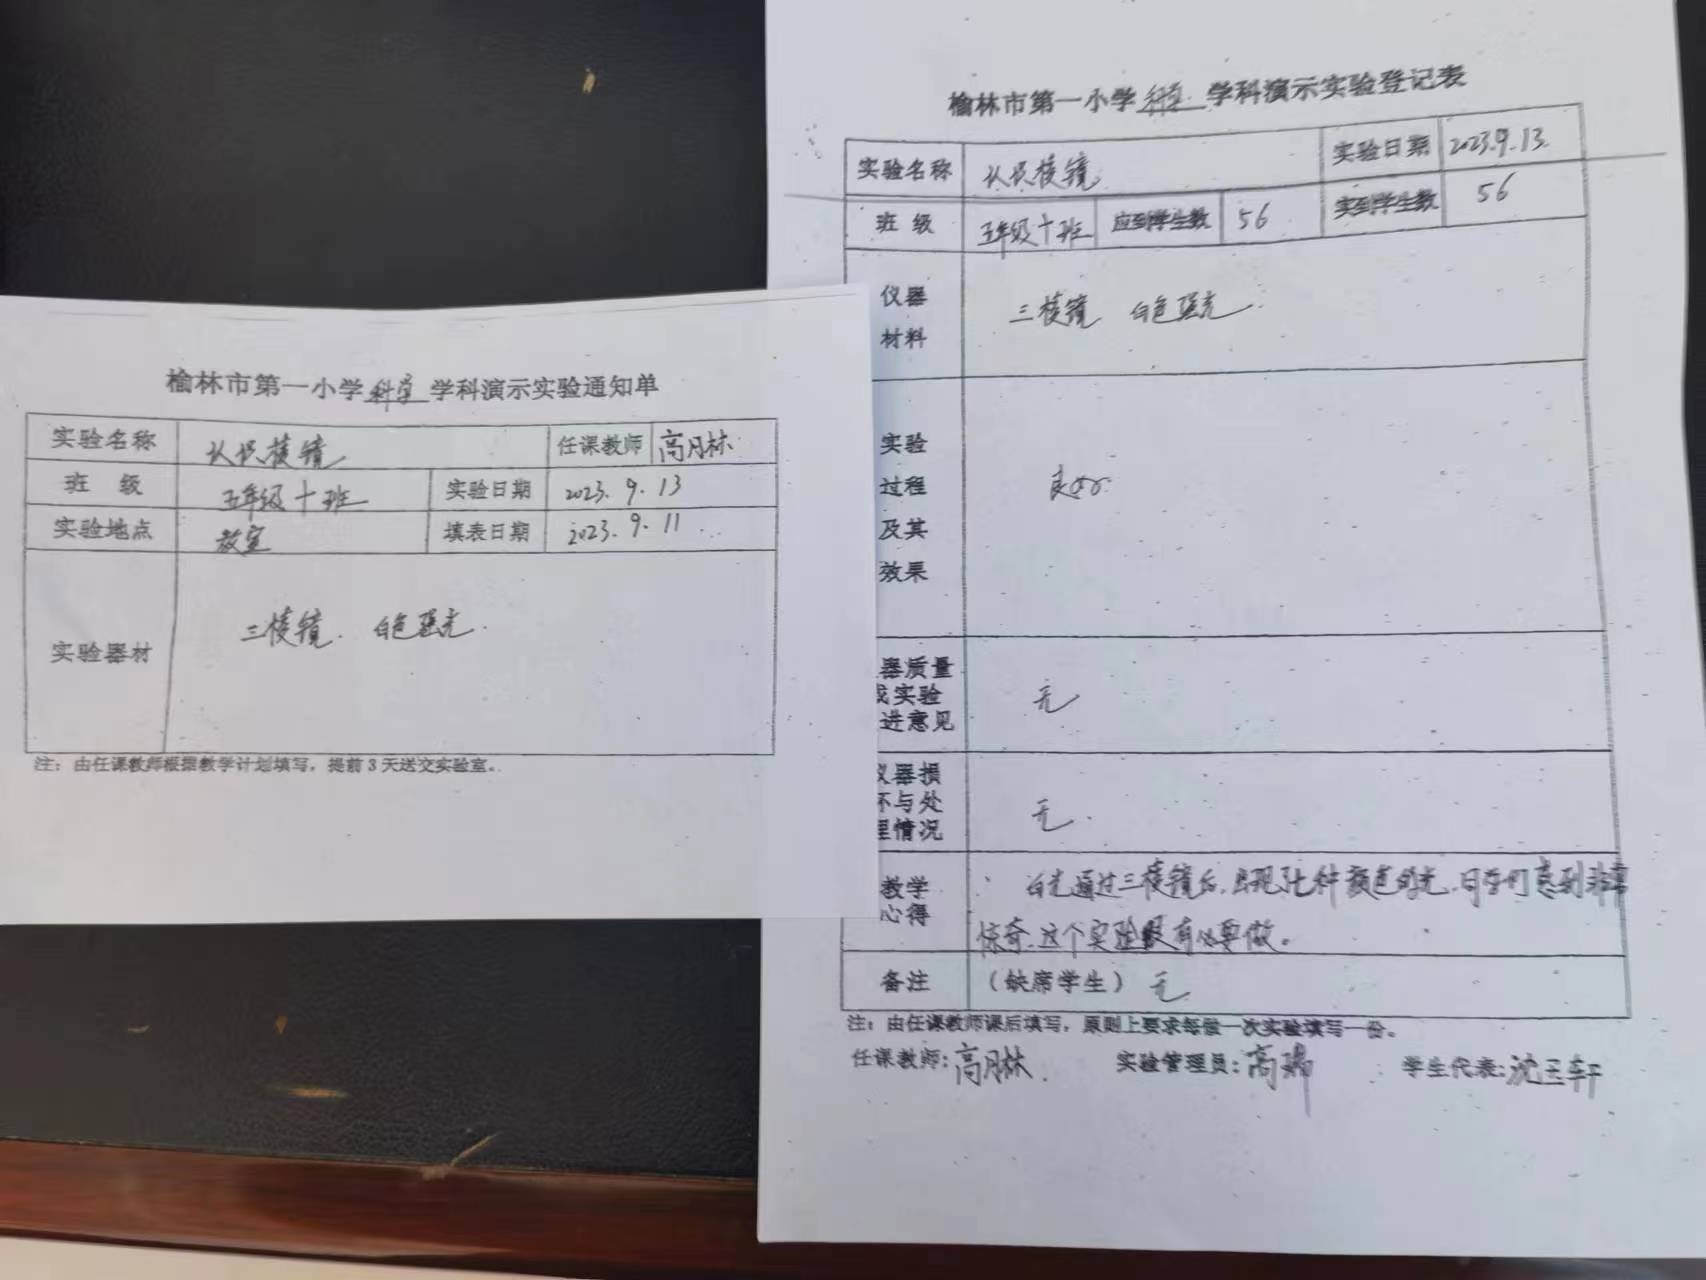 榆林市第一小学科学学科演示实验通知单
实验名称 认识棱镜 任课教师 高月林
班 级 五年级十班 实验日期 2023.9.13
实验地点 教室 填表日期 2023.9.11
实验器材 三棱镜. 白色强光.
注：由任课教师根据教学计划填写，提前3天送交实验室。
榆林市第一小学科学学科演示实验登记表
实验名称 认识棱镜 实验日期 2023.9.13.
班 级 五年级十班 应到学生数 56 实到学生数 56
仪器
材料
三棱镜 白色强光.
实验
过程
及其
效果
良好.
器质量
实验
进意见
无
仪器损
坏与处
理情况
无.
教学
心得
白光通过三棱镜后，出现了七种颜色的光，同学们感到非常
惊奇，这个实验很有必要做。
备注 （缺席学生）无
注：由任课教师课后填写，原则上要求每做一次实验填写一份。
任课教师：高月林. 实验管理员： 学生代表：